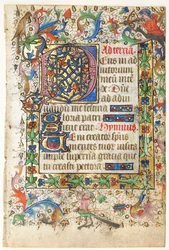 Ad terciā.
Eus in ad
iutorium
meū inte
de. Dñe
ad adiu
uandū me festina
loria patri
ne erat. Hymnus.
Eni creator spūs
mentes tuor
imple superna gratia que
tu creasti pectora